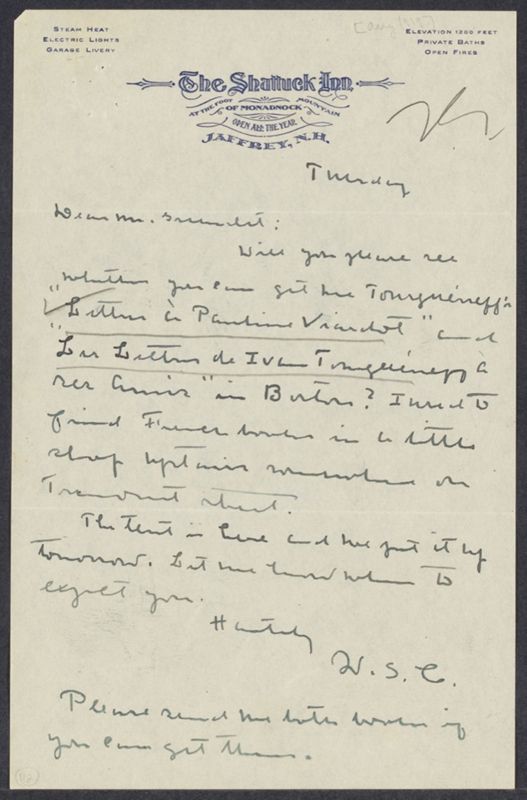 STEAM HEAT
ELECTRIC LIGHTS
GARAGE LIVERY
ELEVATION 1200 FEET
PRIVATE BATHS
OPEN FIRES
The Shattuck Inn
AT THE FOOT OF MONADNOCK MOUNTAIN
OPEN ALL THE YEAR
JAFFREY, N.H.
Tuesday
Dear Mr. Greenslet:
Will you please see
whether you can get me Tourguéneff's
"Lettres à Pauline Viardot" and
"Les Lettres de Ivan Tourguéneff à
ses Amis" in Boston? I used to
find French books in a little
shop upstairs somewhere on
Tremont street.
The tent is here and we put it up
tomorrow. Let me know when to
expect you.
Heartily
W. S. C.
Please send me both books if
you can get them.